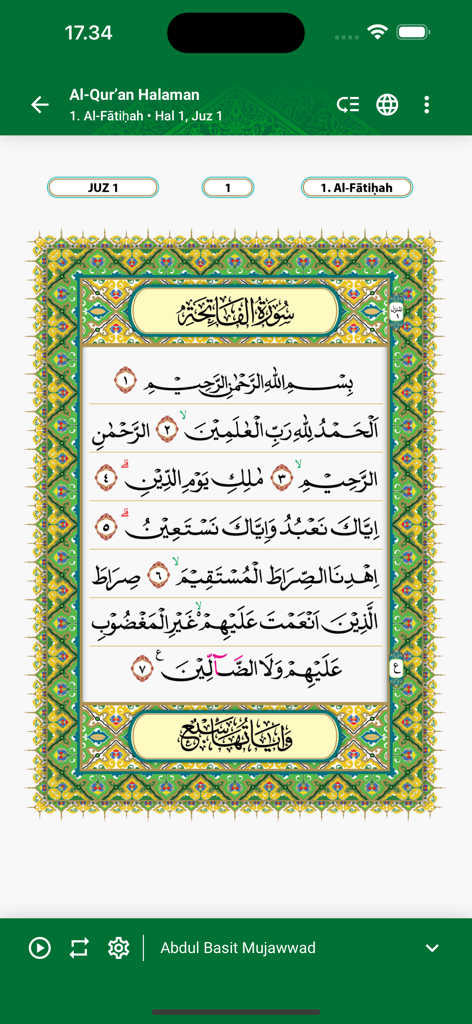 17.34
Al-Qur’an Halaman
1. Al-Fātiḥah • Hal 1, Juz 1
JUZ 1
1
1. Al-Fātiḥah
سُوْرَةُ الْفَاتِحَةِ
منزل ١
بِسْمِ اللّٰهِ الرَّحْمٰنِ الرَّحِيْمِ ١
اَلْحَمْدُ لِلّٰهِ رَبِّ الْعٰلَمِيْنَۙ ٢ الرَّحْمٰنِ
الرَّحِيْمِۙ ٣ مٰلِكِ يَوْمِ الدِّيْنِۗ ٤
اِيَّاكَ نَعْبُدُ وَاِيَّاكَ نَسْتَعِيْنُۗ ٥
اِهْدِنَا الصِّرَاطَ الْمُسْتَقِيْمَۙ ٦ صِرَاطَ
الَّذِيْنَ اَنْعَمْتَ عَلَيْهِمْۙ غَيْرِ الْمَغْضُوْبِ
عَلَيْهِمْ وَلَا الضَّاۤلِّيْنَ ࣖ ٧
ع
وَاٰيَاتُهَا سَبْعٌ
Abdul Basit Mujawwad